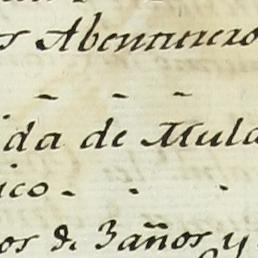 s Abenturero
- - -
ida de Mula
ico - - -
os de 3 años y